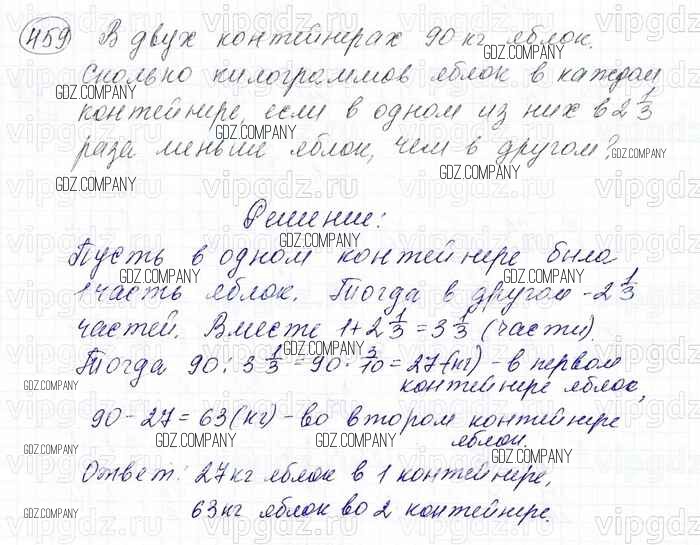 459 В двух контейнерах 90 кг яблок.
Сколько килограммов яблок в каждом
контейнере, если в одном из них в 2 1/3
раза меньше яблок, чем в другом?
Решение:
Пусть в одном контейнере была
1 часть яблок. Тогда в другом - 2 1/3
частей. Вместе 1 + 2 1/3 = 3 1/3 (части).
Тогда 90 : 3 1/3 = 90 · 3/10 = 27 (кг) - в первом
контейнере яблок,
90 - 27 = 63 (кг) - во втором контейнере
яблок.
Ответ: 27 кг яблок в 1 контейнере,
63 кг яблок во 2 контейнере.
GDZ.COMPANY
vipgdz.ru